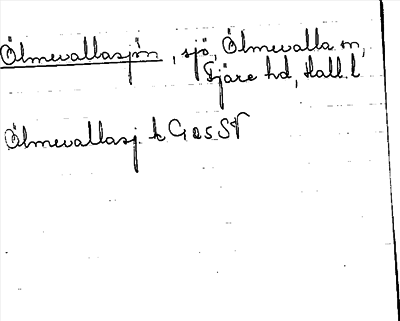 Ölmevallasjön, sjö, Ölmevalla sn,
Fjäre hd, Hall. l
Ölmevallasj. k G 25 SV